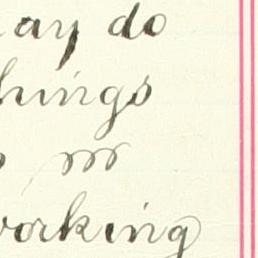 ay do
hings
working